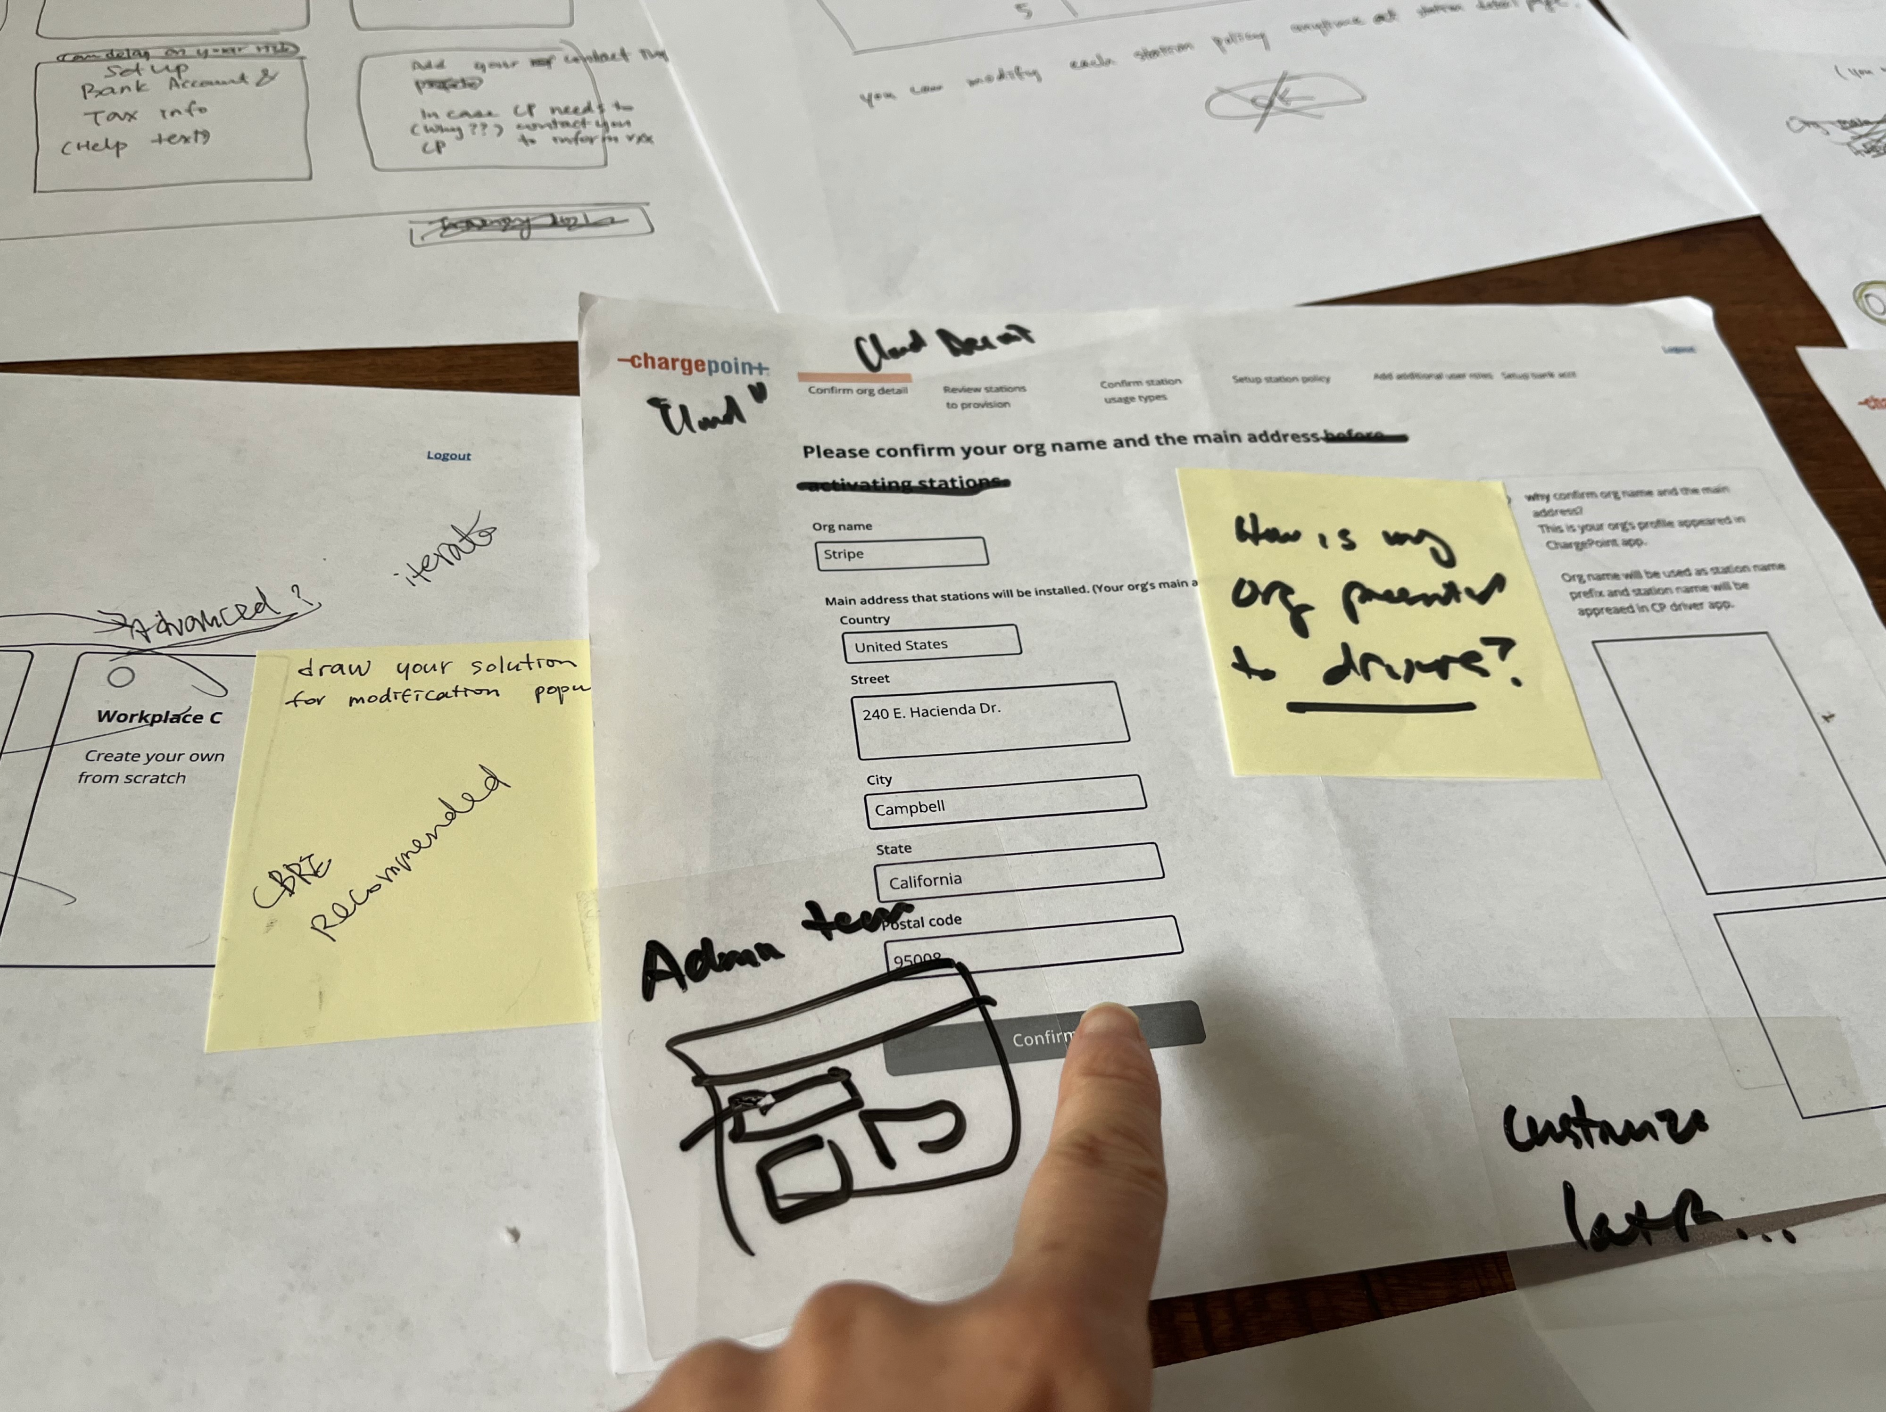 Can delay on your risk
Set up
Bank Account &
Tax info
(Help text)
Add your contact
In case CP needs to
(Why??) contact you
CP to inform xxx
5
you can modify each station policy anytime at station detail page.
Logout
iterate
Advanced?
Workplace C
Create your own
from scratch
draw your solution
for modification popu
CBRE
Recommended
chargepoint
"Cloud"
Cloud
Logout
Confirm org detail
Review stations
to provision
Confirm station
usage types
Setup station policy
Add additional user roles
Setup bank acct
Please confirm your org name and the main address before
activating stations.
Org name
Stripe
Main address that stations will be installed. (Your org's main a
Country
United States
Street
240 E. Hacienda Dr.
City
Campbell
State
California
Postal code
95008
Confirm
How is my
org presented
to drivers?
why confirm org name and the main
address?
This is your org's profile appeared in
ChargePoint app.
Org name will be used as station name
prefix and station name will be
appreaed in CP driver app.
Admin
Customize
later...